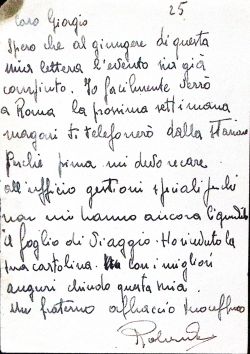 25
Caro Giorgio
Spero che al giungere di questa
mia lettera l'evento sia già
compiuto. Io facilmente verrò
a Roma la prossima settimana
magari ti telefonerò dalla stazione
Perchè prima mi devo recare
all'ufficio gestioni speciali perchè
non mi hanno ancora liquidato
il foglio di viaggio. Ho ricevuto la
tua cartolina. Con i migliori
auguri chiudo questa mia.
Un fraterno abbraccio